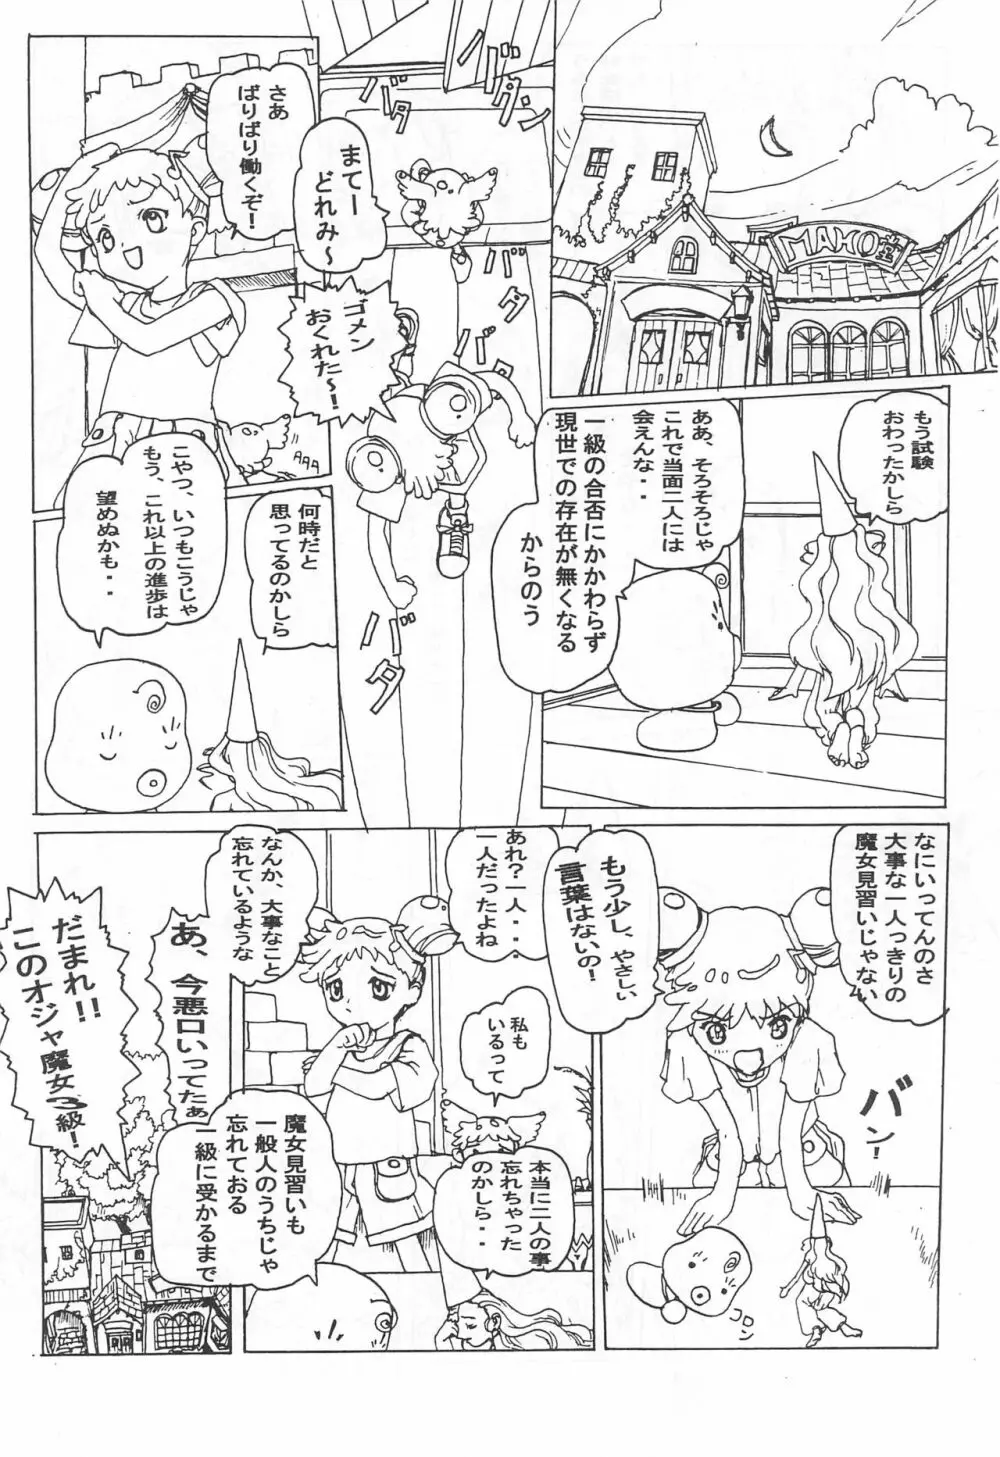 MAHO堂
もう試験
おわったかしら
ああ、そろそろじゃ
これで当面二人には
会えんな・・
一級の合否にかかわらず
現世での存在が無くなる
からのう
バタン
バタ
まてー
どれみ〜
バタ
バタ
ゴメン
おくれた〜!
バタ
さあ
ばりばり働くぞ!
何時だと
思ってるのかしら
こやつ、いつもこうじゃ
もう、これ以上の進歩は
望めぬかも・・
なにいってんのさ
大事な一人っきりの
魔女見習いじゃない
もう少し、やさしい
言葉はないの!
バン!
コロン
あれ?一人・・
一人だったよね
なんか、大事なこと
忘れているような
私も
いるって
本当に二人の事
忘れちゃった
のかしら・・
魔女見習いも
一般人のうちじゃ
忘れておる
一級に受かるまで
あ、今悪口いってたぁ
だまれ!!
このオジャ魔女
級!